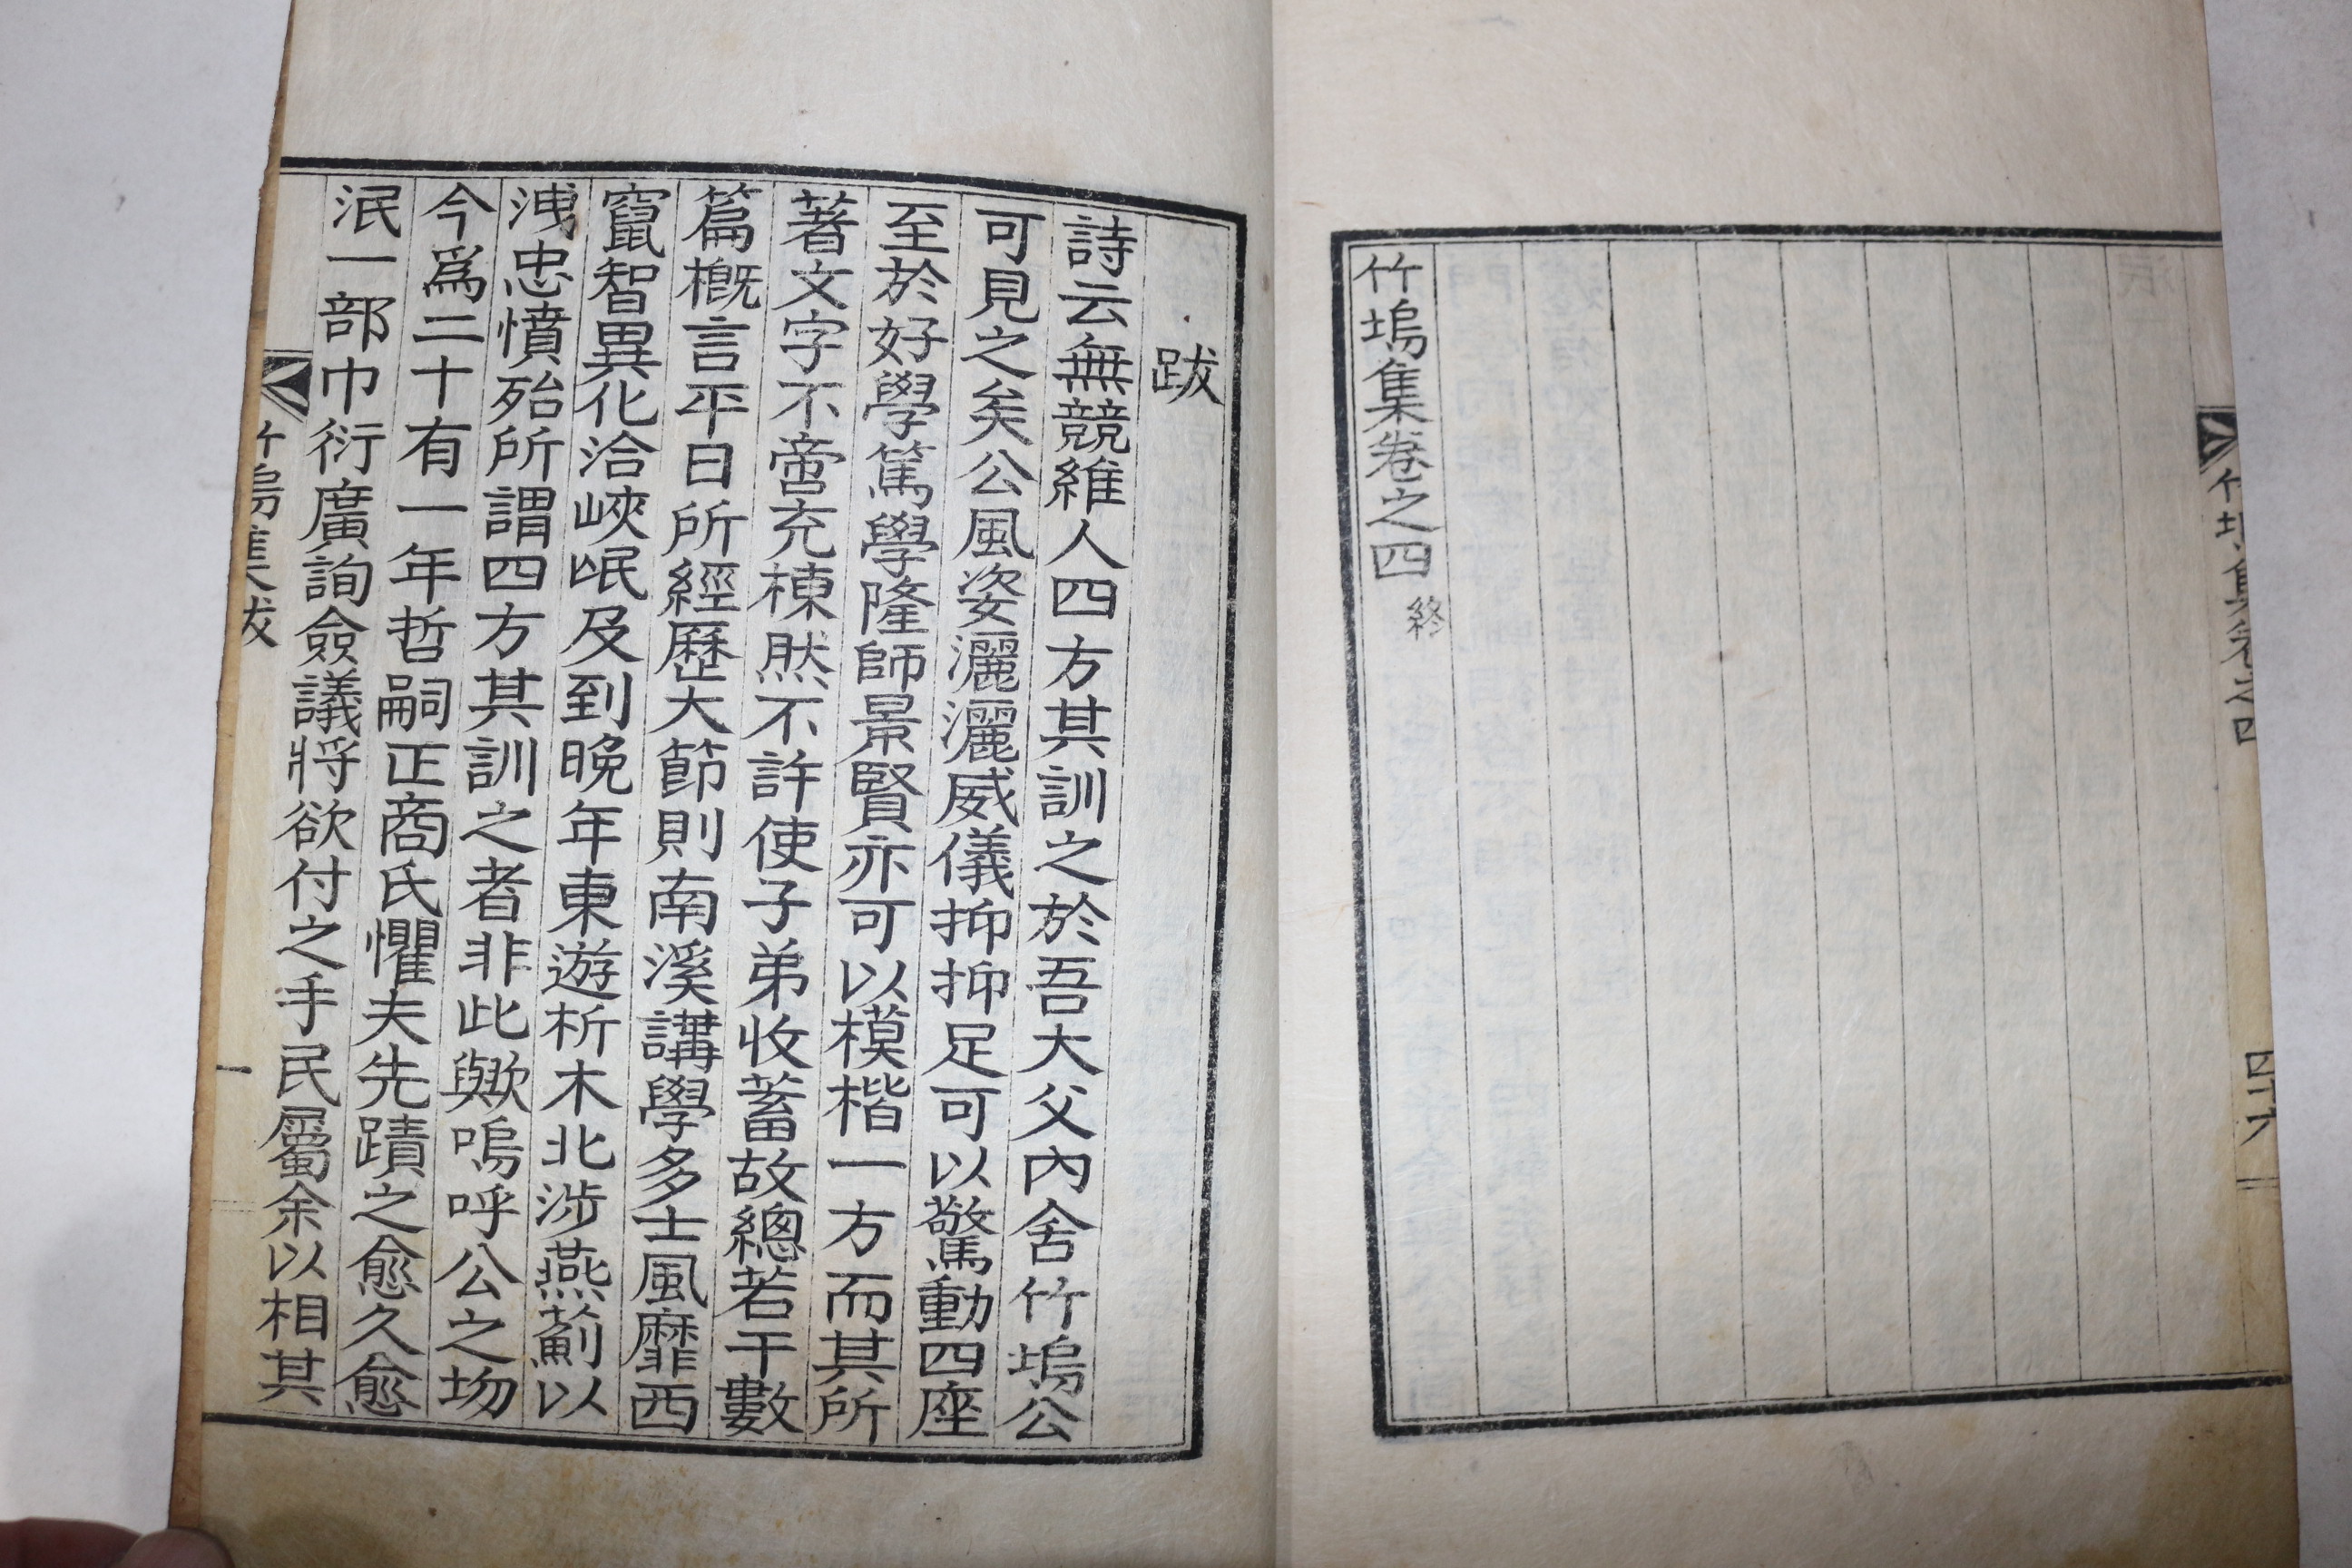 竹塢集卷之四 終
跋
詩云無競維人四方其訓之於吾大父內舍竹塢公
可見之矣公風姿灑灑威儀抑抑足可以驚動四座
至於好學篤學隆師景賢亦可以模楷一方而其所
著文字不啻充棟然不許使子弟收蓄故總若干數
篇槪言平日所經歷大節則南溪講學多士風靡西
竄智異化洽峽岷及到晚年東遊析木北涉燕薊以
洩忠憤殆所謂四方其訓之者非此歟嗚呼公之歿
今爲二十有一年哲嗣正商氏懼夫先蹟之愈久愈
泯一部巾衍廣詢僉議將欲付之手民屬余以相其
竹塢集跋
一